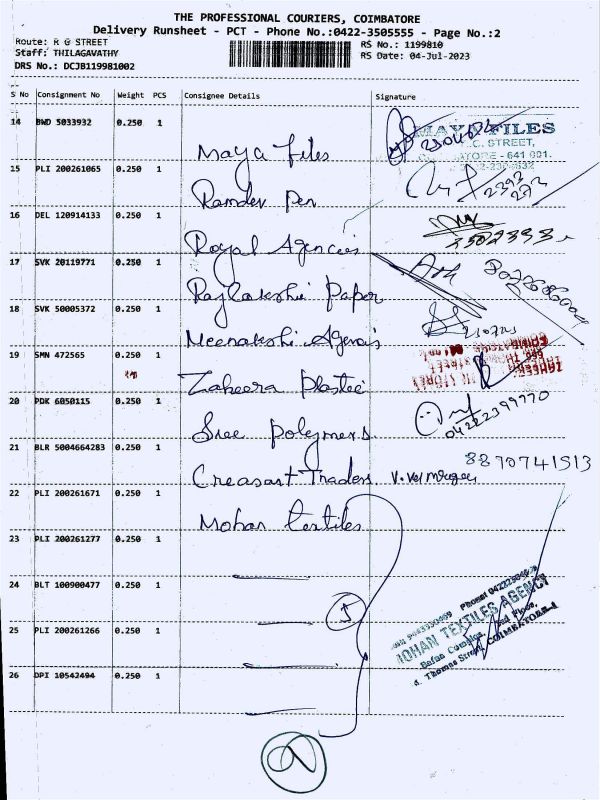 THE PROFESSIONAL COURIERS, COIMBATORE
Delivery Runsheet - PCT - Phone No.:0422-3505555 - Page No.:2
Route: R G STREET
RS No.: 1199810
Staff: THILAGAVATHY
RS Date: 04-Jul-2023
DRS No.: DCJB119981002
S No Consignment No Weight PCS Consignee Details Signature
14 BWD 5033932 0.250 1
Maya Files
MAYA FILES
STREET,
641 001.
15 PLI 200261065 0.250 1
Ramdev Pen
16 DEL 120914133 0.250 1
Royal Agencies
2502393
17 SVK 20119771 0.250 1
Rajlakshi Paper
18 SVK 50005372 0.250 1
Meenakshi Agencis
19 SMN 472565 0.250 1
Zaheera Plastic
20 PDK 6050115 0.250 1
Sree Polymers
04222399770
21 BLR 5004664283 0.250 1
Creasant Traders V. Vel murugan 8870741513
22 PLI 200261671 0.250 1
Mohan textiles
23 PLI 200261277 0.250 1
24 BLT 100900477 0.250 1
5
MOHAN TEXTILES AGENCY
25 PLI 200261266 0.250 1
Thomas Street, COIMBATORE-1
26 DPI 10542494 0.250 1